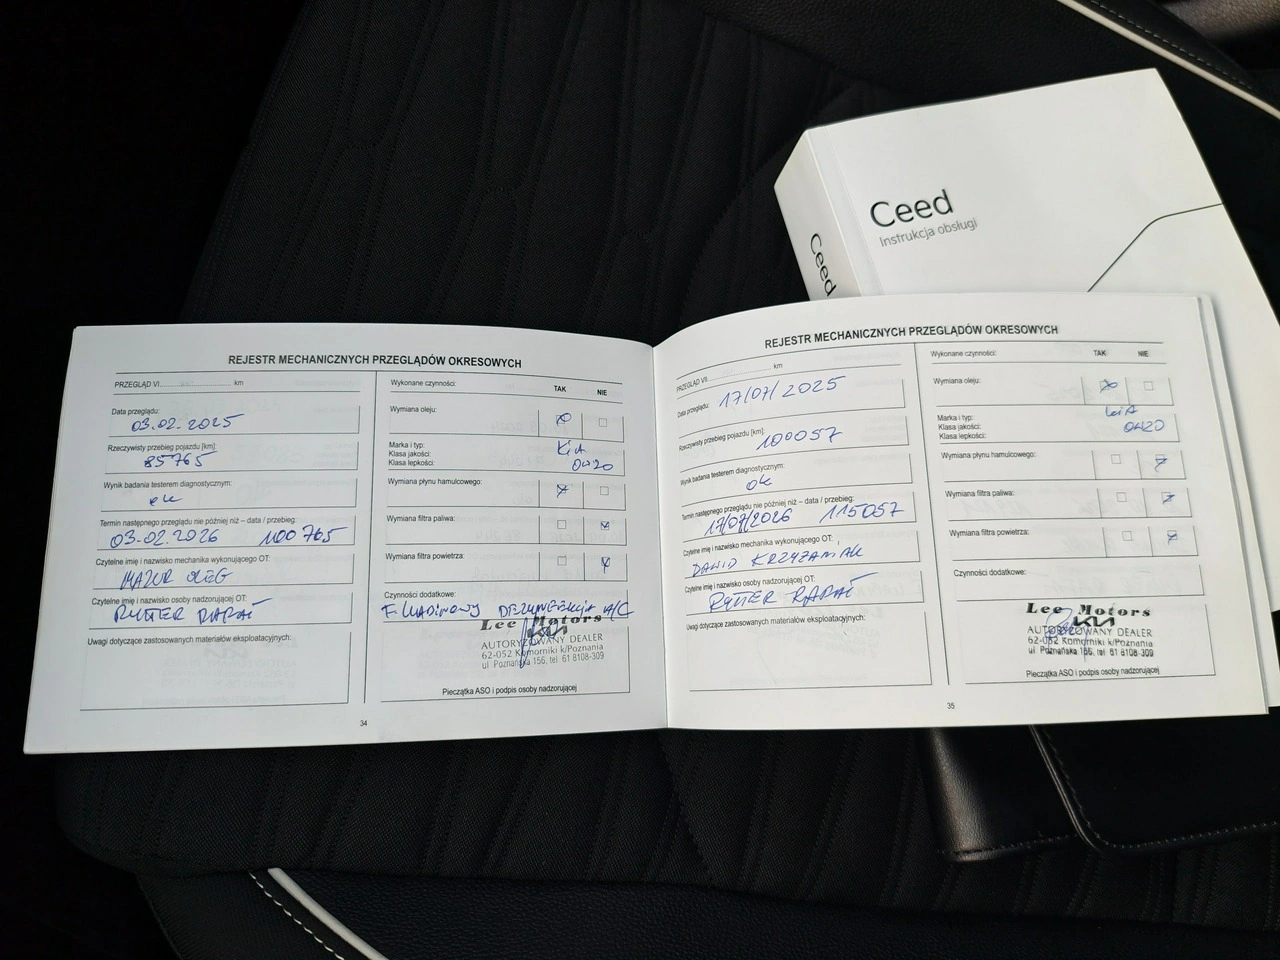 Ceed
Instrukcja obsługi
Ceed
REJESTR MECHANICZNYCH PRZEGLĄDÓW OKRESOWYCH
PRZEGLĄD VI km
Data przeglądu:
03.02.2025
Rzeczywisty przebieg pojazdu [km]:
85765
Wynik badania testerem diagnostycznym:
ok
Termin następnego przeglądu nie później niż – data / przebieg:
03.02.2026 100765
Czytelne imię i nazwisko mechanika wykonującego OT:
MAZUR OLEG
Czytelne imię i nazwisko osoby nadzorującej OT:
RYTTER RAFAŁ
Uwagi dotyczące zastosowanych materiałów eksploatacyjnych:
34
Wykonane czynności: TAK NIE
Wymiana oleju:
Marka i typ: KiA
Klasa jakości:
Klasa lepkości: 0W20
Wymiana płynu hamulcowego:
Wymiana filtra paliwa:
Wymiana filtra powietrza:
Czynności dodatkowe:
F. KABINOWY DEZYNFEKCJA A/C
Lee Motors
KIA
AUTORYZOWANY DEALER
62-052 Komorniki k/Poznania
ul Poznańska 156, tel 61 8108-309
Pieczątka ASO i podpis osoby nadzorującej
REJESTR MECHANICZNYCH PRZEGLĄDÓW OKRESOWYCH
PRZEGLĄD VII km
Data przeglądu: 17/07/2025
Rzeczywisty przebieg pojazdu [km]:
100057
Wynik badania testerem diagnostycznym:
ok
Termin następnego przeglądu nie później niż – data / przebieg:
17/07/2026 115057
Czytelne imię i nazwisko mechanika wykonującego OT:
DAWID KRZYŻANIAK
Czytelne imię i nazwisko osoby nadzorującej OT:
RYTTER RAFAŁ
Uwagi dotyczące zastosowanych materiałów eksploatacyjnych:
35
Wykonane czynności: TAK NIE
Wymiana oleju:
Marka i typ: KiA
Klasa jakości:
Klasa lepkości: 0W20
Wymiana płynu hamulcowego:
Wymiana filtra paliwa:
Wymiana filtra powietrza:
Czynności dodatkowe:
Lee Motors
KIA
AUTORYZOWANY DEALER
62-052 Komorniki k/Poznania
ul Poznańska 156, tel 61 8108-309
Pieczątka ASO i podpis osoby nadzorującej